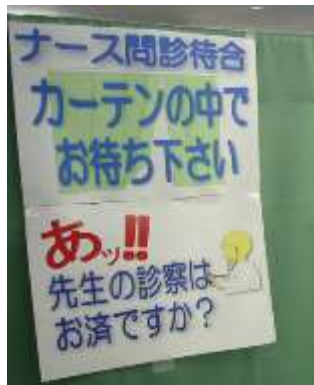 ナース問診待合
カーテンの中で
お待ち下さい
あッ!!
先生の診察は
お済ですか?